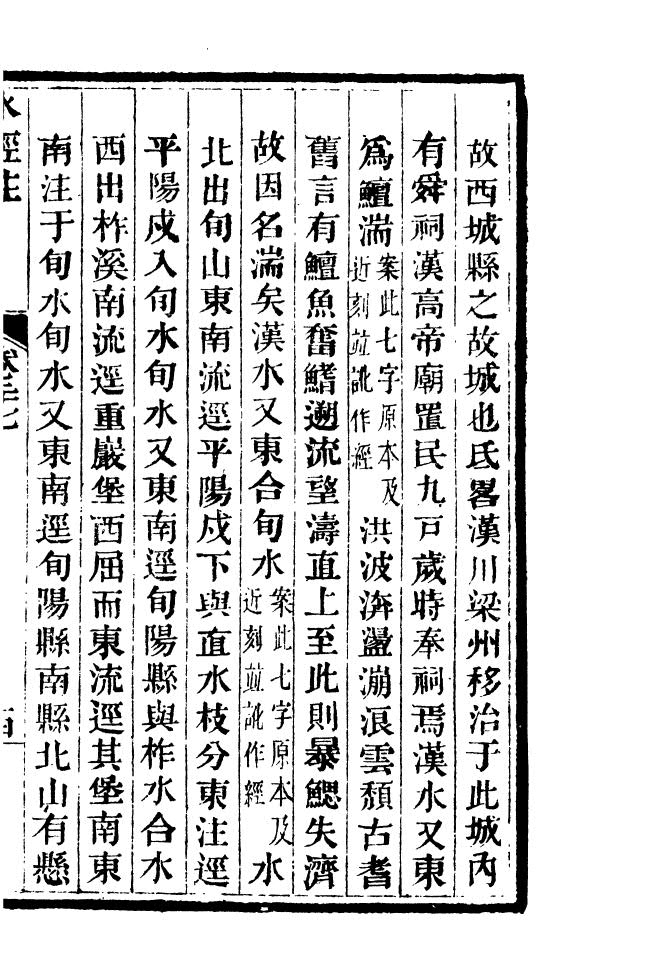 故西城縣之故城也氐畧漢川梁州移治于此城內
有舜祠漢高帝廟置民九戸歲時奉祠焉漢水又東
為鱣湍案此七字原本及近刻並訛作經洪波渀盪漰浪雲頹古耆
舊言有鱣魚奮鰭遡流望濤直上至此則暴鰓失濟
故因名湍矣漢水又東合旬水案此七字原本及近刻並訛作經水
北出旬山東南流逕平陽戍下與直水枝分東注逕
平陽戍入旬水旬水又東南逕旬陽縣與柞水合水
西出柞溪南流逕重巖堡西屈而東流逕其堡南東
南注于旬水旬水又東南逕旬陽縣南縣北山有懸
水經注 卷二十七